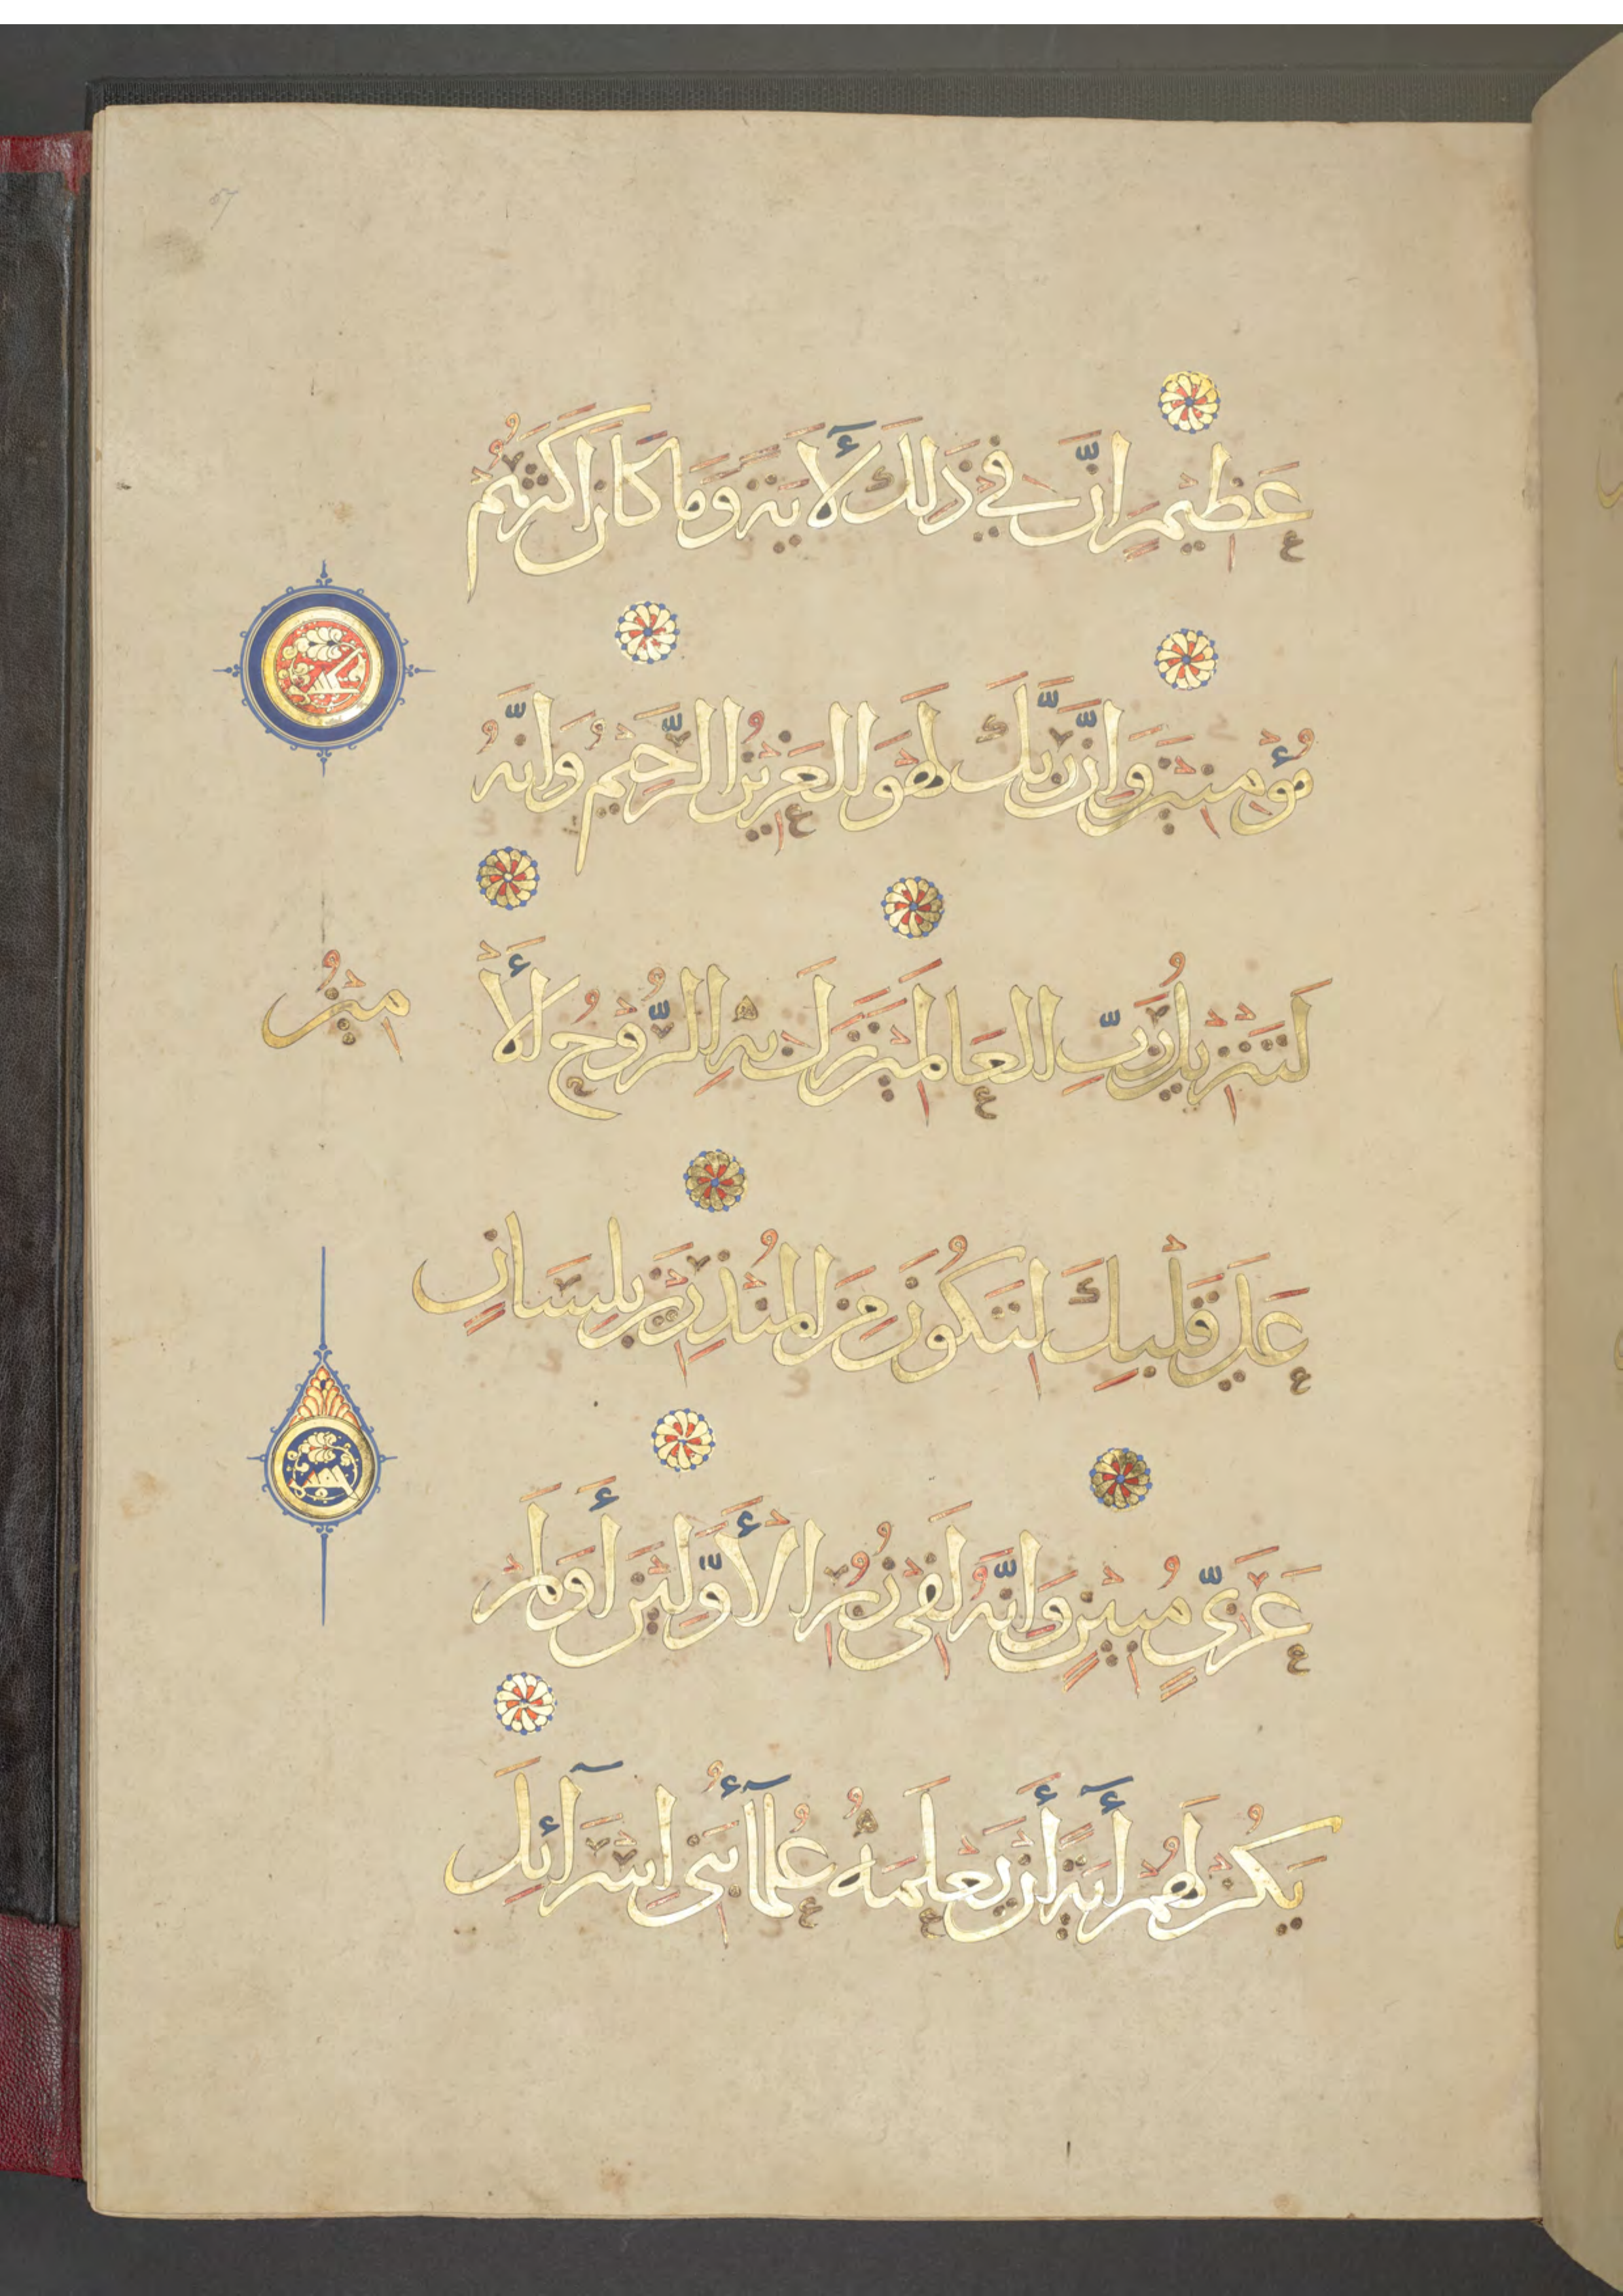 عَظِيْمٍ اِنَّ فِيْ ذَلِكَ لَأَيَةً وَمَا كَانَ اَكْثَرُهُمْ
مُؤْمِنِيْنَ وَاِنَّ رَبَّكَ لَهْوَ الْعَزِيْزُ الرَّحِيْمُ وَاِنَّهُ
لَتَنْزِيْلُ رَبِّ الْعَالَمِيْنَ نَزَلَ بِهِ الرُّوْحُ الْأَ
مِيْنُ
عَلَى قَلْبِكَ لِتَكُوْنَ مِنَ الْمُنْذِرِيْنَ بِلِسَانٍ
عَرَبِيٍّ مُبِيْنٍ وَاِنَّهُ لَفِيْ زُبُرِ الْأَوَّلِيْنَ أَوَلَمْ
يَكُنْ لَهُمْ أَيَةً أَنْ يَعْلَمَهُ عُلَمَآؤُ بَنِيْ اِسْرَآئِلَ